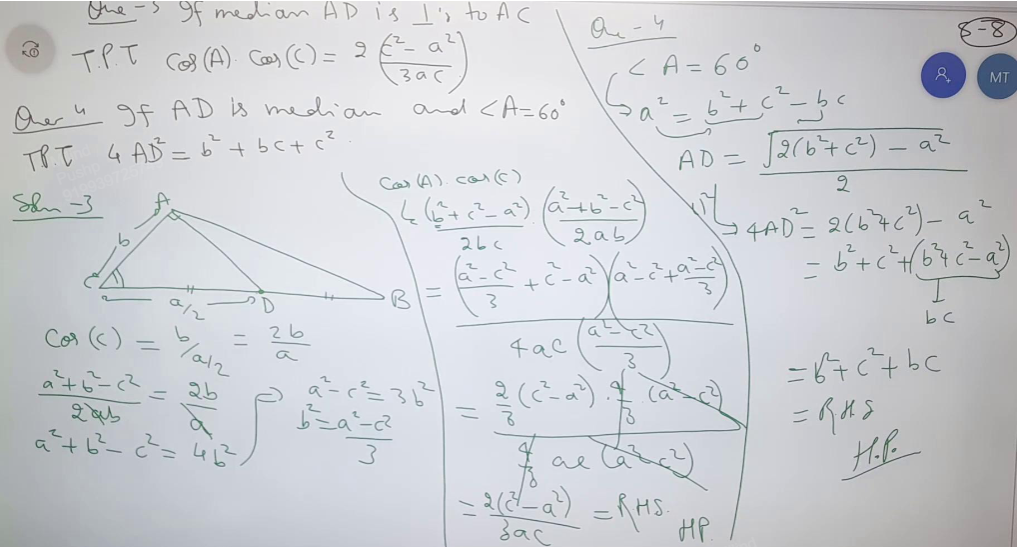 Que-3 If median AD is ⊥r to AC
T.P.T cos(A). Cos(C) = 2 (c² - a² / 3ac)
Ques 4 If AD is median and <A=60°
T.P.T 4AD² = b² + bc + c²
Soln-3
A
b
C
a/2
D
B
Cos(C) = b / a/2 = 2b/a
a²+b²-c² / 2ab = 2b/a
a²+b²-c² = 4b²
⇒ a²-c² = 3b²
b² = a²-c² / 3
Cos(A). cos(C)
↳ (b²+c²-a² / 2bc) . (a²+b²-c² / 2ab)
= (a²-c² / 3 + c²-a²) (a²-c² + a²-c² / 3) / 4ac (a²-c² / 3)
= 2/3 (c²-a²) . 4/3 (a²-c²) / 4/3 ac (a²-c²)
= 2(c²-a²) / 3ac = RHS.
HP.
Que-4
8-8
MT
<A = 60°
↳ a² = b² + c² - bc
AD = √2(b²+c²) - a² / 2
↳ 4AD² = 2(b²+c²) - a²
= b²+c²+(b²+c²-a²)
↓
bc
= b²+c²+bc
= RHS
H.P.